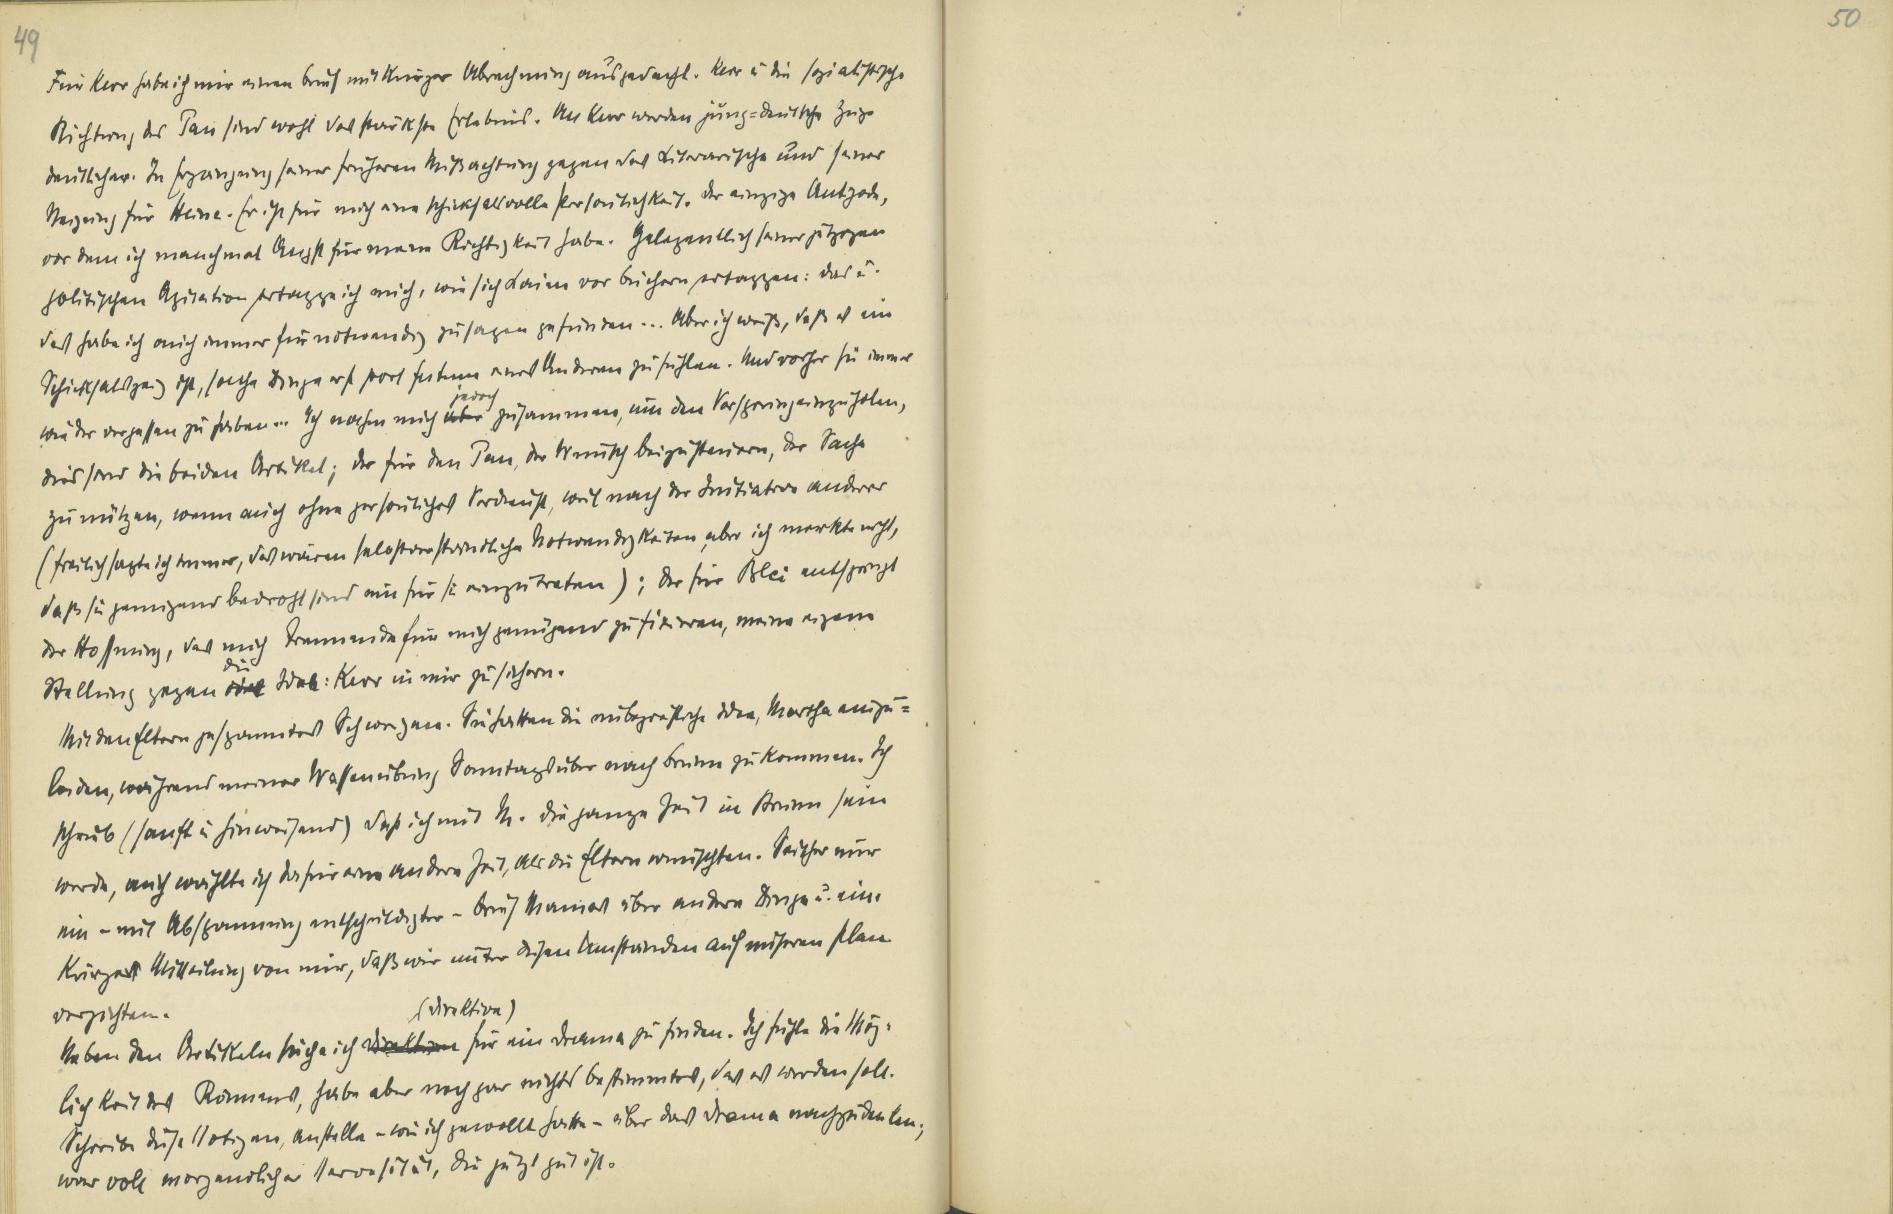 49
50
Für Kerr habe ich mir einen Brief mit kurzer Abrechnung ausgedacht. Kerr u die sozialistische
Richtung des Pan sind wohl das stärkste Erlebnis. An Kerr werden jung=deutsche Züge
deutlicher. In Ergänzung seiner früheren Mißachtung gegen das Literarische und seiner
Neigung für Heine. Er ist für mich eine schicksalsvolle Persönlichkeit. Der einzige Antipode,
vor dem ich manchmal Angst für meine Richtigkeit habe. Gelegentlich seiner jetzigen
politischen Agitation ertappe ich mich, wie sich Laien vor Büchern ertappen: das u.
das habe ich auch immer für notwendig zu sagen gefunden ... Aber ich weiß, daß es ein
Schicksalszug ist, solche Dinge erst post festum eines Anderen zu fühlen. Und vorher sie immer
wieder vergessen zu haben ... Ich nahm mich aber jedoch zusammen, um den Vorsprung einzuholen,
dies sind die beiden Artikel; der für den Pan, der Wunsch beizusteuern, der Sache
zu nützen, wenn auch ohne persönliches Verdienst, weil nach der Initiative anderer
(freilich sagte ich immer, das wären selbstverständliche Notwendigkeiten, aber ich merkte nicht,
daß sie genügend bedroht sind um für sie einzutreten); der für Blei entspringt
der Hoffnung, das mich Trennende für mich genügend zu fixieren, meine eigene
Stellung gegen die Idee: Kerr in mir zu sichern.
Mit den Eltern gespanntes Schweigen. Sie hatten die unbegreifliche Idee, Martha einzu=
laden, während meiner Waffenübung Sonntagsüber nach Brünn zu kommen. Ich
schrieb (sanft u hinweisend) daß ich mit M. die ganze Zeit in Brünn sein
werde, auch wählte ich dafür eine andere Zeit, als die Eltern wünschten. Seither nur
ein – mit Abspannung entschuldigter – Brief Mamas über andere Dinge u. eine
kurze Mitteilung von mir, daß wir unter diesen Umständen auf unseren Plan
verzichten.
Neben den Artikeln suche ich Direktion (Direktive) für ein Drama zu finden. Ich fühle die Mög=
lichkeit des Könnens, habe aber noch gar nichts bestimmtes, das es werden soll.
Schreibe diese Notizen, anstelle – wie ich gewollt hatte – über das Drama nachzudenken;
war voll morgendlicher Nervosität, die jetzt gut ist.